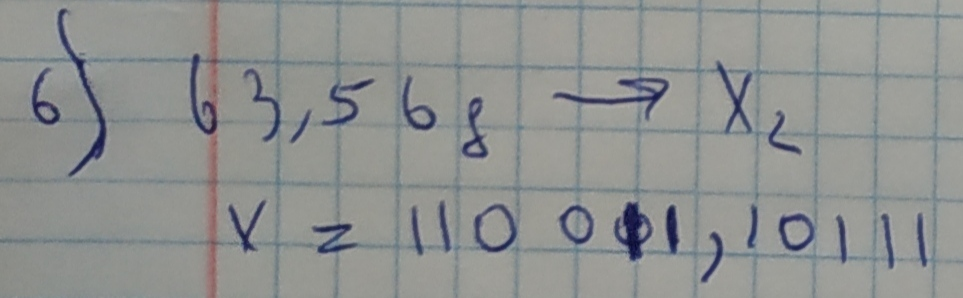 6) 63,56₈ → X₂
X = 110 011,10111